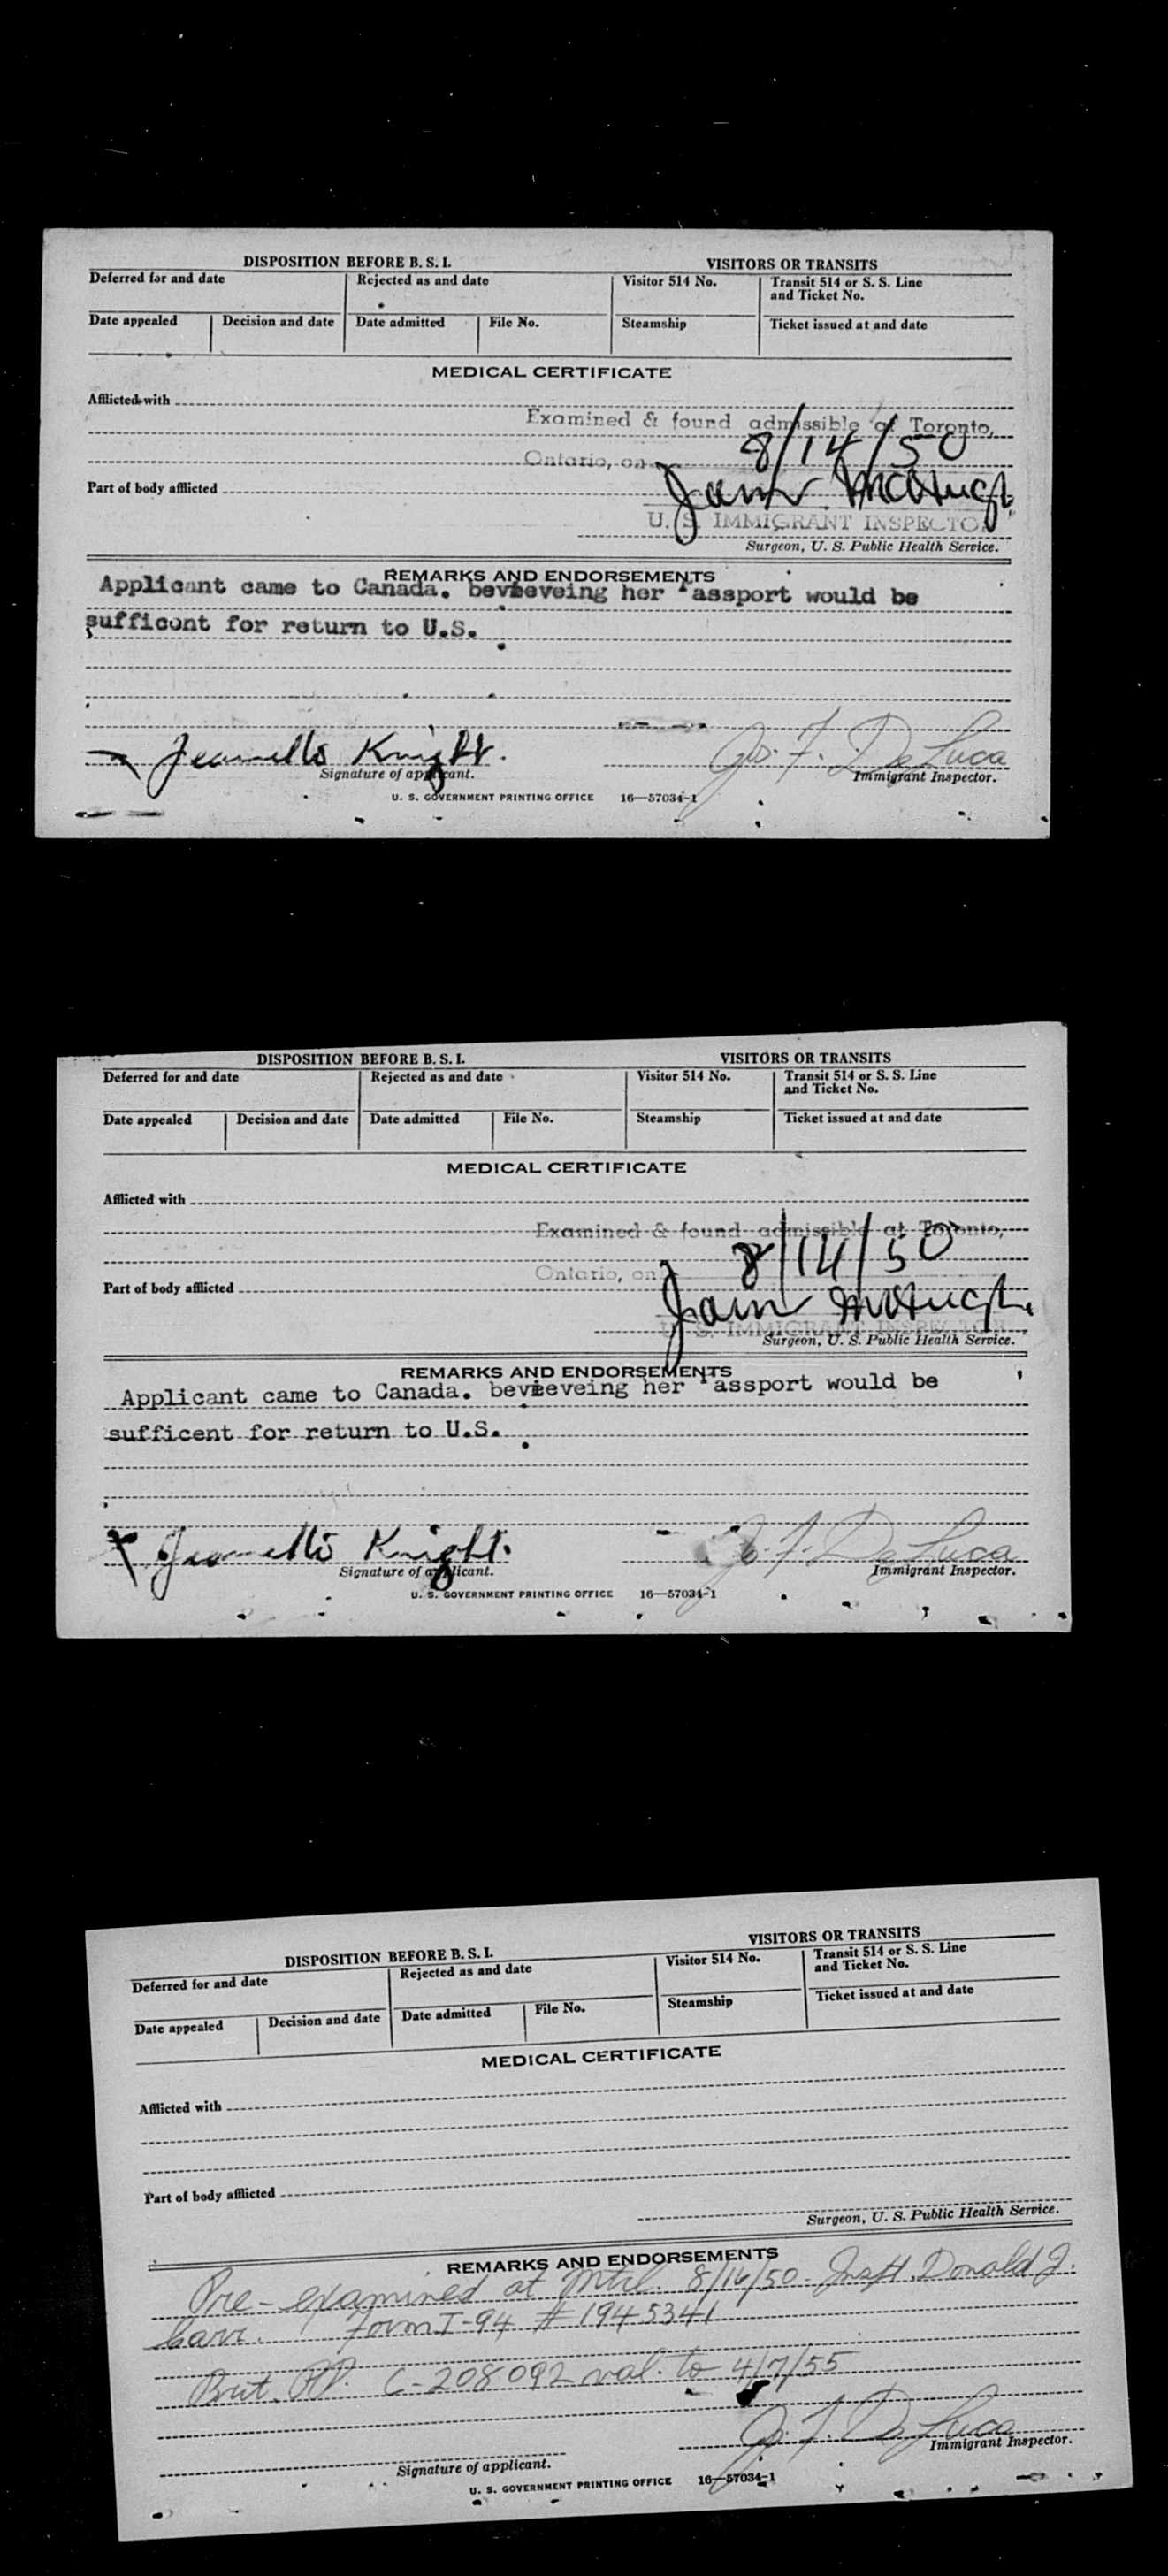 DISPOSITION BEFORE B. S. I.
VISITORS OR TRANSITS
Deferred for and date
Rejected as and date
Visitor 514 No.
Transit 514 or S. S. Line
and Ticket No.
Date appealed
Decision and date
Date admitted
File No.
Steamship
Ticket issued at and date
MEDICAL CERTIFICATE
Afflicted with
Examined & found admissible at Toronto,
8/14/50
Ontario, on
Part of body afflicted
McHugh
U. S. IMMIGRANT INSPECTOR
Surgeon, U. S. Public Health Service.
REMARKS AND ENDORSEMENTS
Applicant came to Canada. her Passport would be
sufficent for return to U.S.
Knight.
Jos. F. DeLuca
Signature of applicant.
Immigrant Inspector.
U. S. GOVERNMENT PRINTING OFFICE 16—57034-1
DISPOSITION BEFORE B. S. I.
VISITORS OR TRANSITS
Deferred for and date
Rejected as and date
Visitor 514 No.
Transit 514 or S. S. Line
and Ticket No.
Date appealed
Decision and date
Date admitted
File No.
Steamship
Ticket issued at and date
MEDICAL CERTIFICATE
Afflicted with
Examined & found admissible at Toronto,
8/14/50
Ontario, on
Part of body afflicted
McHugh
U. S. IMMIGRANT INSPECTOR
Surgeon, U. S. Public Health Service.
REMARKS AND ENDORSEMENTS
Applicant came to Canada. her Passport would be
sufficent for return to U.S.
Knight.
Jos. F. DeLuca
Signature of applicant.
Immigrant Inspector.
U. S. GOVERNMENT PRINTING OFFICE 16—57034-1
DISPOSITION BEFORE B. S. I.
VISITORS OR TRANSITS
Deferred for and date
Rejected as and date
Visitor 514 No.
Transit 514 or S. S. Line
and Ticket No.
Date appealed
Decision and date
Date admitted
File No.
Steamship
Ticket issued at and date
MEDICAL CERTIFICATE
Afflicted with
Part of body afflicted
Surgeon, U. S. Public Health Service.
REMARKS AND ENDORSEMENTS
Pre-examined at Mtrl. 8/16/50 - Donald J.
Carr. Form I-94 # 1945341
Brit. PP. C-208092 val. to 4/7/55
J. F. DeLuca
Immigrant Inspector.
Signature of applicant.
U. S. GOVERNMENT PRINTING OFFICE 16—57034-1